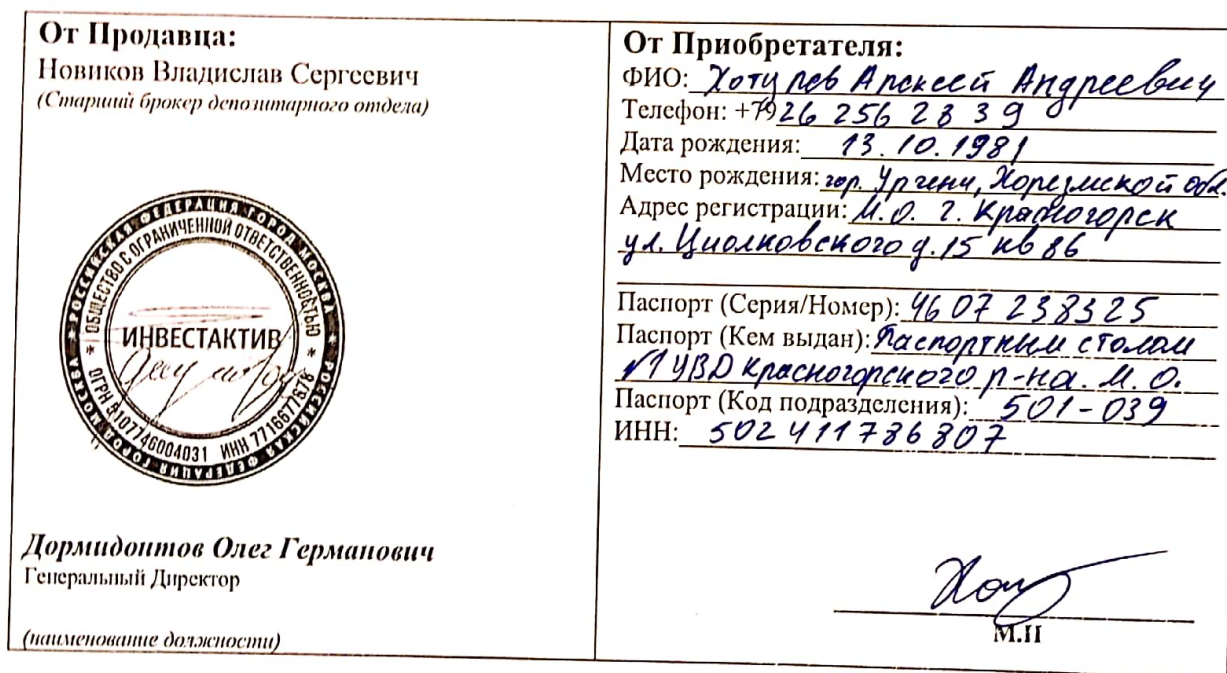 От Продавца:
Новиков Владислав Сергеевич
(Старший брокер депозитарного отдела)
РОССИЙСКАЯ ФЕДЕРАЦИЯ ГОРОД МОСКВА * РОССИЙСКАЯ ФЕДЕРАЦИЯ ГОРОД МОСКВА *
ОБЩЕСТВО С ОГРАНИЧЕННОЙ ОТВЕТСТВЕННОСТЬЮ
ИНВЕСТАКТИВ
* ОГРН 5107746004031 ИНН 7716677678 *
Дормидонтов Олег Германович
Генеральный Директор
(наименование должности)
От Приобретателя:
ФИО: Хотулев Алексей Андреевич
Телефон: +7926 256 28 39
Дата рождения: 13.10.1981
Место рождения: гор. Ургенч, Хорезмской обл.
Адрес регистрации: М.О. г. Красногорск
ул. Циолковского д. 15 кв 86
Паспорт (Серия/Номер): 46 07 238325
Паспорт (Кем выдан): Паспортным столом
№1 УВД Красногорского р-на. М.О.
Паспорт (Код подразделения): 501-039
ИНН: 502411786807
М.П